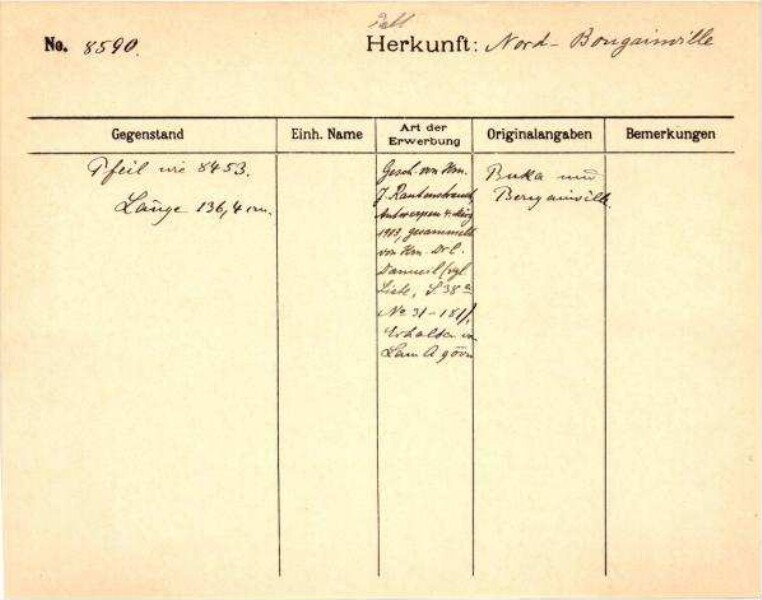 No. 8590. Herkunft: Nord-Bougainville
Gegenstand Einh. Name Art der Erwerbung Originalangaben Bemerkungen
Pfeil wie 8453.
Länge 136,4 cm.
Gesch. von Hrn.
J. Rautenstrauch,
Antwerpen 4. März
1913, gesammelt
von Hrn. Dr. C.
Damm (vgl.
Liste, S. 38a
No 31-181),
Erhalten in
Buka und
Bougainville.